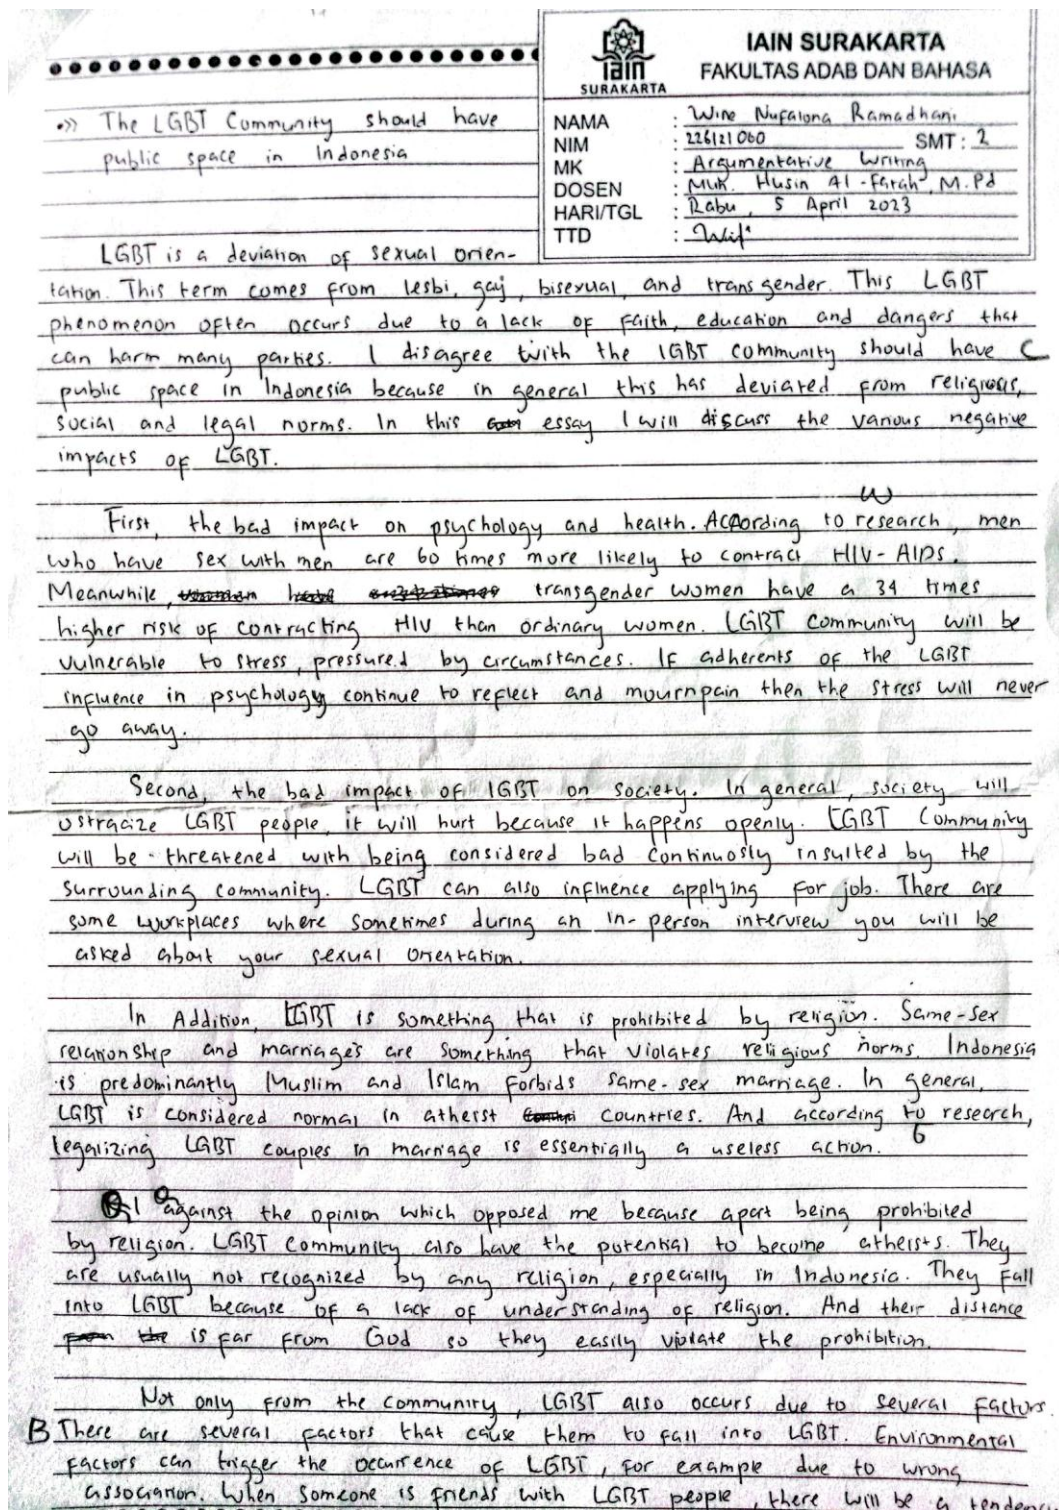 IAIN SURAKARTA
FAKULTAS ADAB DAN BAHASA
iain
SURAKARTA
NAMA : Wine Nufalona Ramadhani
NIM : 226121060 SMT : 2
MK : Argumentative Writing
DOSEN : Muh. Husin Al-Farah, M.Pd
HARI/TGL : Rabu, 5 April 2023
TTD :
The LGBT Community should have
public space in Indonesia
LGBT is a deviation of sexual orien-
tation. This term comes from lesbi, gay, bisexual, and transgender. This LGBT
phenomenon often occurs due to a lack of faith, education and dangers that
can harm many parties. I disagree with the LGBT community should have C
public space in Indonesia because in general this has deviated from religious,
social and legal norms. In this essay I will discuss the various negative
impacts of LGBT.
W
First, the bad impact on psychology and health. According to research, men
who have sex with men are 60 times more likely to contract HIV-AIDS.
Meanwhile, transgender women have a 34 times
higher risk of contracting HIV than ordinary women. LGBT community will be
vulnerable to stress, pressured by circumstances. If adherents of the LGBT
influence in psychology continue to reflect and mournpain then the stress will never
go away.
Second, the bad impact of LGBT on society. In general, society will
ostracize LGBT people, it will hurt because it happens openly. LGBT Community
will be threatened with being considered bad continuosly insulted by the
surrounding community. LGBT can also influence applying for job. There are
some workplaces where sometimes during an in-person interview you will be
asked about your sexual orientation.
In Addition, LGBT is something that is prohibited by religion. Same-sex
relationship and marriages are something that violates religious norms. Indonesia
is predominantly Muslim and Islam forbids same-sex marriage. In general,
LGBT is considered normal in atheist countries. And according to research,
6
legalizing LGBT couples in marriage is essentially a useless action.
I against the opinion which opposed me because apart being prohibited
by religion. LGBT community also have the potential to become atheists. They
are usually not recognized by any religion, especially in Indonesia. They fall
into LGBT because of a lack of understanding of religion. And their distance
is far from God so they easily violate the prohibition.
Not only from the community, LGBT also occurs due to several factors.
B There are several factors that cause them to fall into LGBT. Environmental
factors can trigger the occurrence of LGBT, for example due to wrong
association. When someone is friends with LGBT people, there will be a tendenc